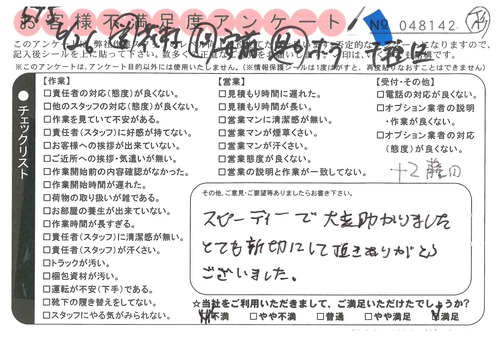 お客様不満足度アンケート
№ 048142
※このアンケートは、アンケート目的以外には使用いたしません。(※情報保護シールは1度はがすと、再度貼りなおすことはできません)
チェックリスト
【作業】
□責任者の対応(態度)が良くない。
□他のスタッフの対応(態度)が良くない。
□作業を見ていて不安がある。
□責任者(スタッフ)に好感が持てない。
□お客様への挨拶が出来ていない。
□ご近所への挨拶・気遣いが無い。
□作業開始前の内容確認がなかった。
□作業開始時間が遅れた。
□荷物の取り扱いが雑である。
□お部屋の養生が出来ていない。
□作業時間が長すぎる。
□責任者(スタッフ)に清潔感が無い。
□責任者(スタッフ)が汗くさい。
□トラックが汚い。
□梱包資材が汚い。
□運転が不安(下手)である。
□靴下の履き替えをしてない。
□スタッフにやる気がみられない。
【営業】
□見積もり時間に遅れた。
□見積もり時間が長い。
□営業マンに清潔感が無い。
□営業マンが煙草くさい。
□営業マンが汗くさい。
□営業態度が良くない。
□営業の説明と作業が一致してない。
【受付・その他】
□電話の対応が良くない。
□オプション業者の説明
・作業が良くない。
□オプション業者の対応
(態度)が良くない。
その他、ご意見・ご要望等ありましたらお書き下さい。
スピーディーで大変助かりました
とても親切にして頂きありがとう
ございました。
☆当社をご利用いただきまして、ご満足いただけたでしょうか?
不満 □やや不満 □普通 □やや満足 満足